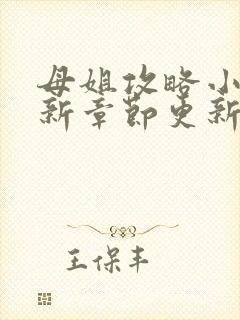 母姐攻略小
新章节更新
王保丰